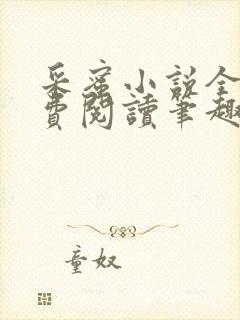 采蜜小說全
費閱讀筆趣
童奴